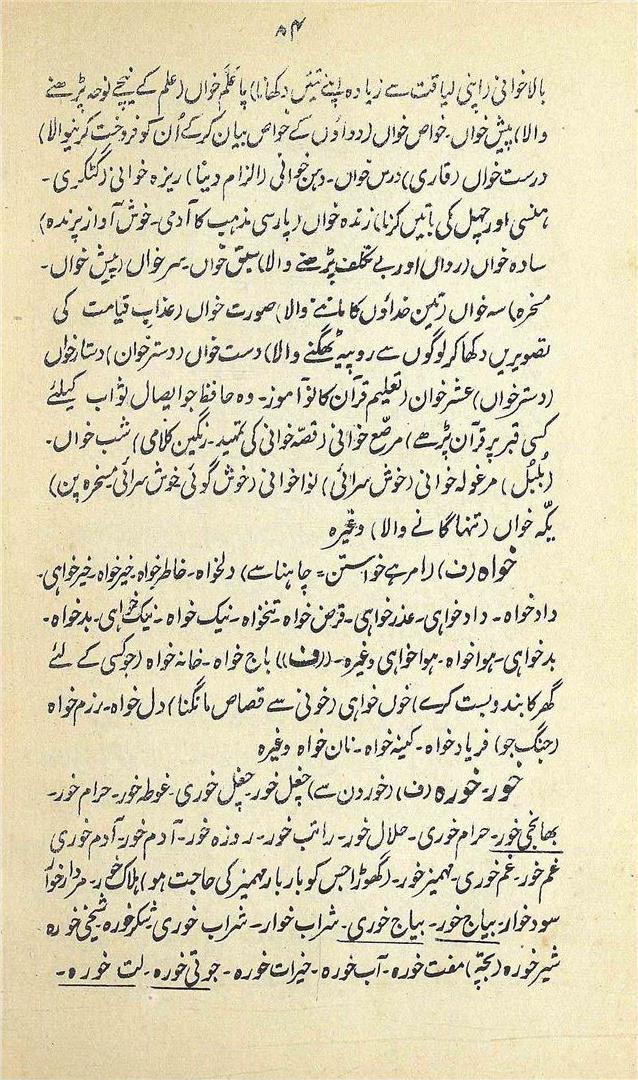 ۸۴
بالاخوانی (اپنی لیاقت سے زیادہ اپنے تئیں دکھانا) پاعلم خواں (علم کے نیچے نوحہ پڑھنے
والا) پیش خواں۔ خواص خواں (دواؤں کے خواص بیان کرکے اُن کو فروخت کرنیوالا)
درست خواں (قاری) درس خواں۔ دہن خوانی (الزام دینا) ریزہ خوانی (گٹکری۔
ہنسی اور چہل کی باتیں کرنا) زندہ خواں (پارسی مذہب کا آدمی۔ خوش آواز پرندہ)
سادہ خواں (رواں اور بے تکلف پڑھنے والا) سبق خواں۔ سرخواں (پیش خواں۔
مسخرہ) سہ خواں (تین خداؤں کا ماننے والا) صورت خواں (عذاب قیامت کی
تصویریں دکھا کر لوگوں سے روپیہ ٹھگنے والا) دست خواں (دسترخوان) دستارخواں
(دسترخواں) عشرخوان (تعلیم قرآن کا نوآموز۔ وہ حافظ جو ایصال ثواب کیلئے
کسی قبر پر قرآن پڑھے) مرصع خوانی (قصہ خوانی کی تمہید۔ رنگین کلامی) شب خواں۔
(بُلبُل) مرغولہ خوانی (خوش سرائی) نواخوانی (خوش گوئی خوش سرائی مسخرہ پن)
یکّہ خواں (تنہا گانے والا) وغیرہ
خواہ (ف) (امر ہے خواستن = چاہنا سے) دلخواہ۔ خاطرخواہ۔ خیرخواہ۔ خیرخواہی۔
دادخواہ۔ دادخواہی۔ عذرخواہی۔ قرض خواہ۔ تنخواہ۔ نیک خواہ۔ نیک خواہی۔ بدخواہ۔
بدخواہی۔ ہواخواہ۔ ہواخواہی وغیرہ۔ ((ف)) باج خواہ۔ خانہ خواہ (جو کسی کے لئے
گھر کا بندوبست کرے) خوں خواہی (خونی سے قصاص مانگنا) دل خواہ۔ رزم خواہ
(جنگ جو) فریادخواہ۔ کینہ خواہ۔ نان خواہ وغیرہ
خور۔ خورہ (ف) (خوردن سے) چغل خور۔ چغل خوری۔ غوطہ خور۔ حرام خور۔
بھانجی خور۔ حرام خوری۔ حلال خور۔ راتب خور۔ روزہ خور۔ آدم خور۔ آدم خوری
غم خور۔ غم خوری۔ مہمیز خور۔ (گھوڑا جس کو بار بار مہمیز کی حاجت ہو) ہلاک خور۔ مردارخوار
سودخوار۔ بیاج خور۔ بیاج خوری۔ شراب خوار۔ شراب خوری۔ شکرخورہ۔ شیخی خورہ
شیرخورہ (بچّہ) مفت خورہ۔ آب خورہ۔ خیرات خورہ۔ جوتی خورہ۔ لت خورہ۔